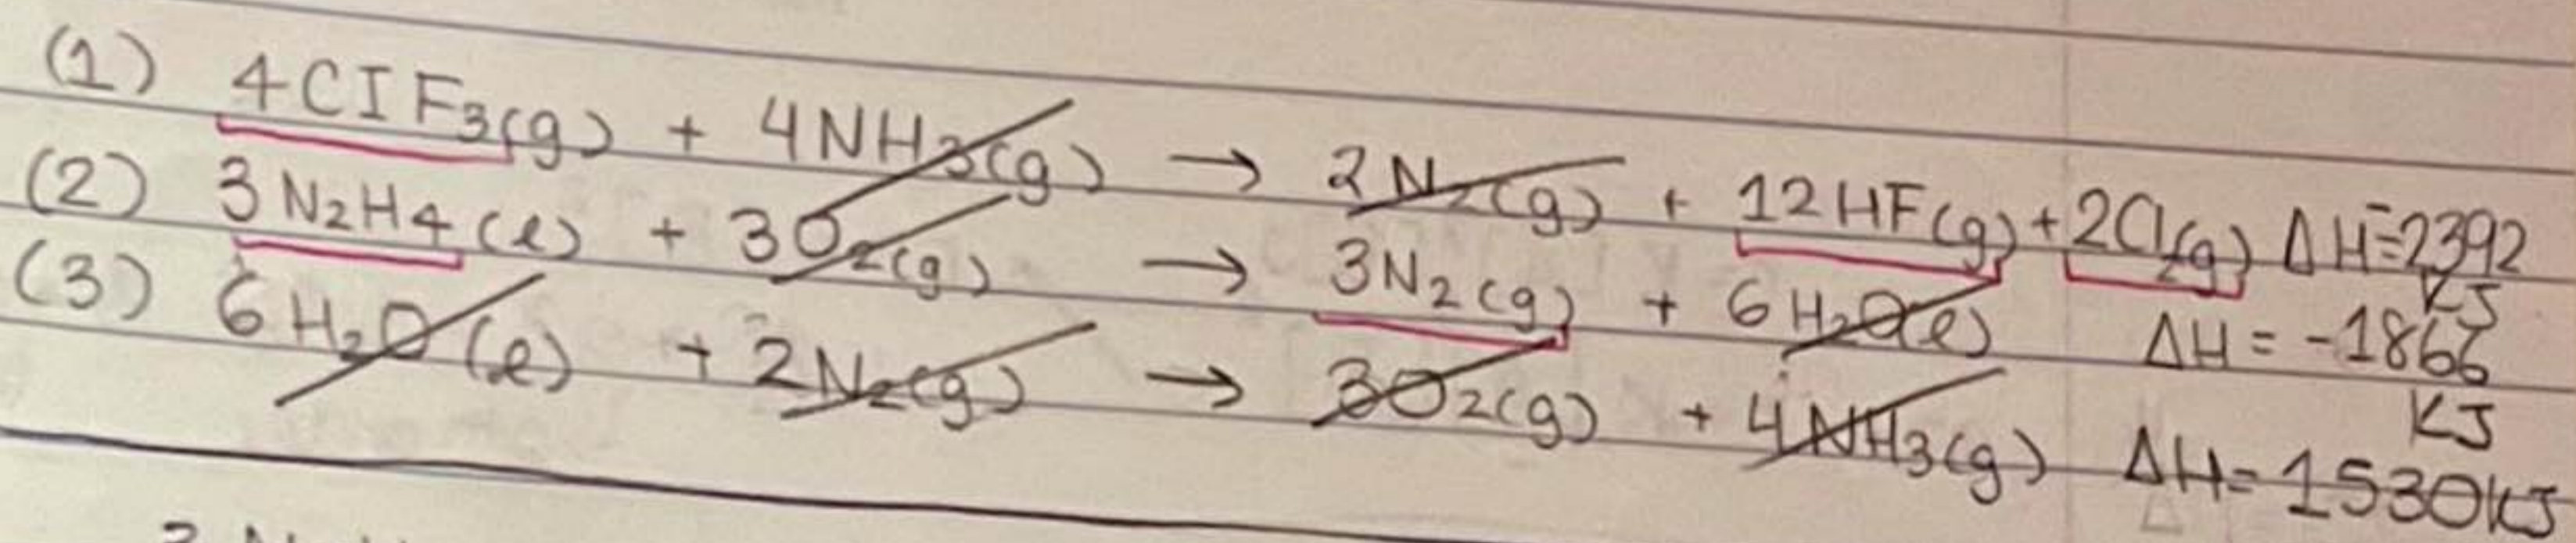 (1) 4ClF3(g) + 4NH3(g) → 2N2(g) + 12HF(g) + 2Cl2(g) ΔH=-2392 KJ
(2) 3N2H4(l) + 3O2(g) → 3N2(g) + 6H2O(l) ΔH = -1866 KJ
(3) 6H2O(l) + 2N2(g) → 3O2(g) + 4NH3(g) ΔH=1530KJ